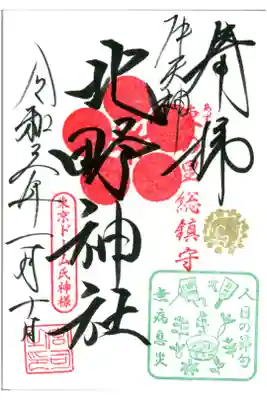 奉拝
総鎮守
牛天神
北野神社
令和
年一月
東京ドーム氏神様
人日の節句
無病息災